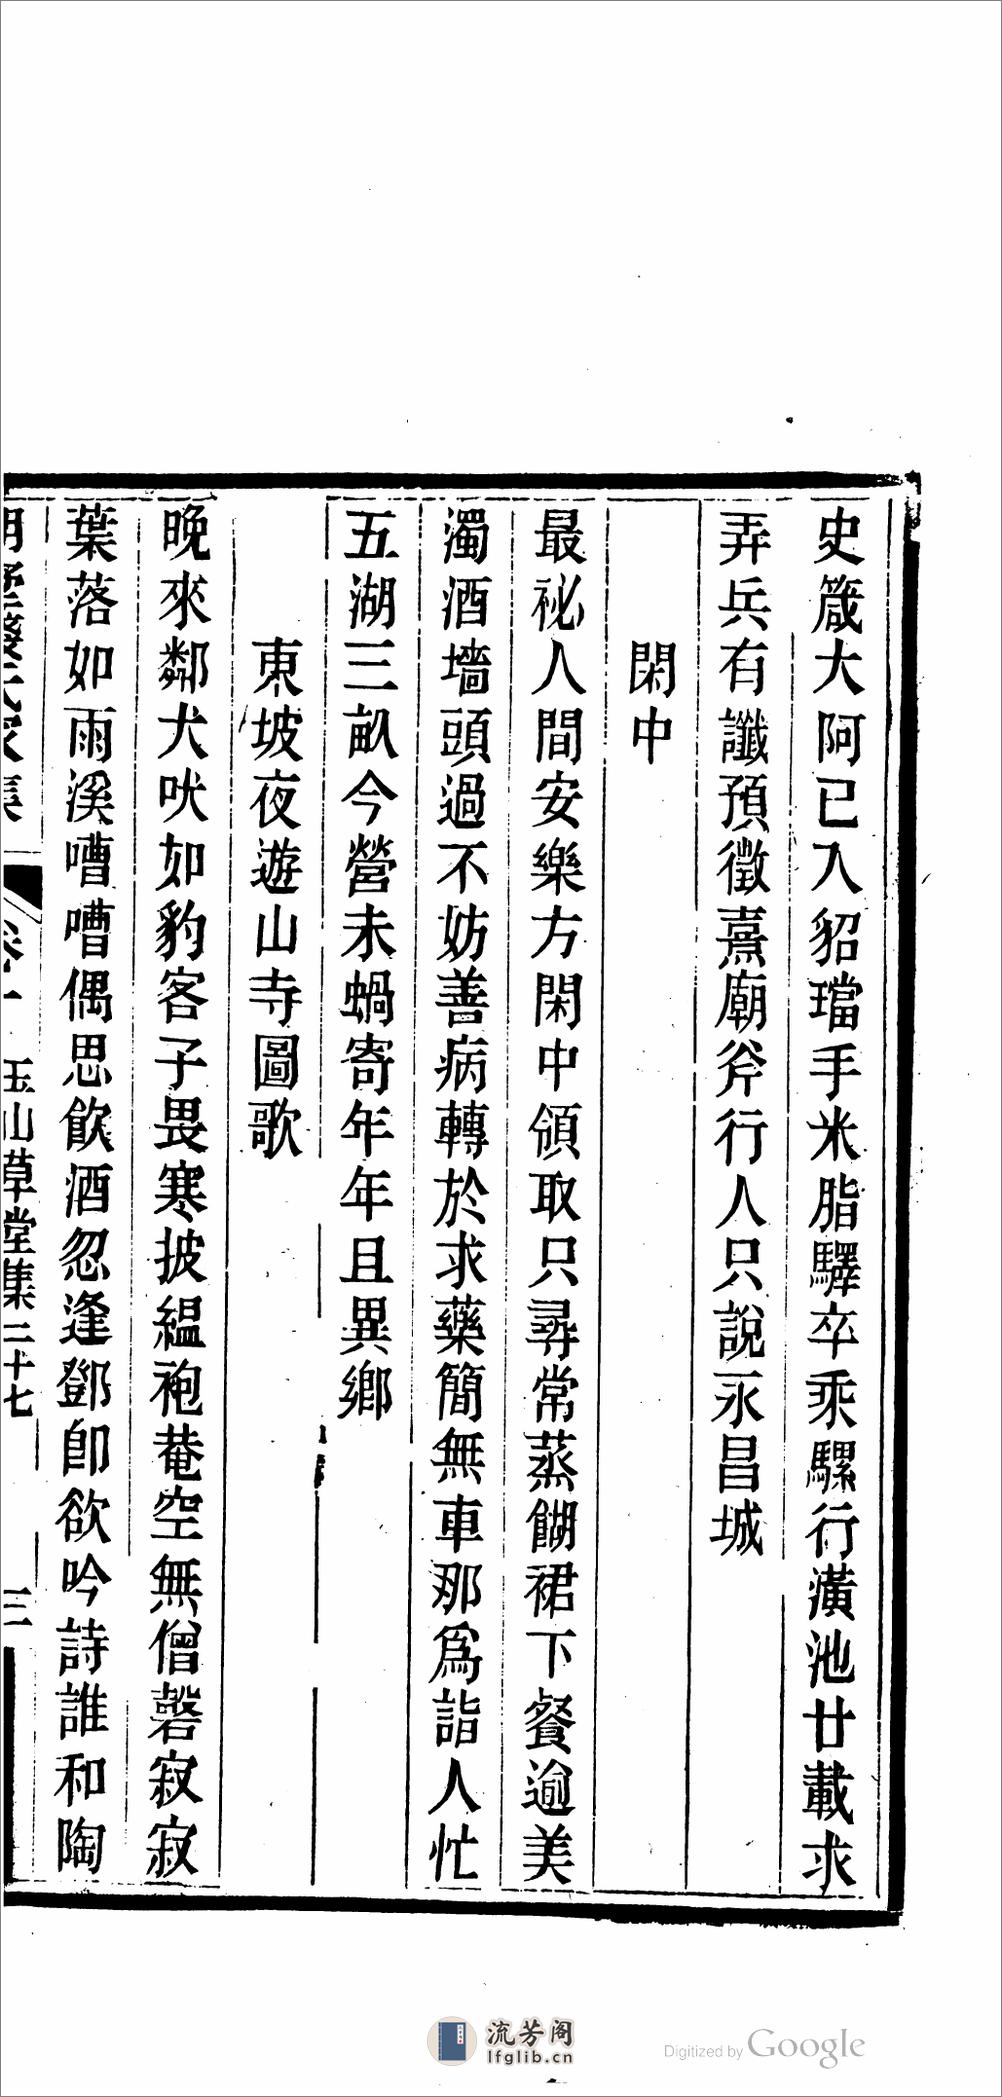 史箴大阿已入貂璫手米脂驛卒乘騾行潢池廿載求
弄兵有讖預徵熹廟斧行人只說永昌城
閑中
最祕人間安樂方閑中領取只尋常蒸餬裙下餐逾美
濁酒墻頭過不妨善病轉於求藥簡無車那爲詣人忙
五湖三畝今營未蝸寄年年且異鄉
東坡夜遊山寺圖歌
晚來鄰犬吠如豹客子畏寒披緼袍菴空無僧磬寂寂
葉落如雨溪嘈嘈偶思飲酒忽逢鄧卽欲吟詩誰和陶
玉山草堂集二十七
三
流芳阁
lfglib.cn
Digitized by Google